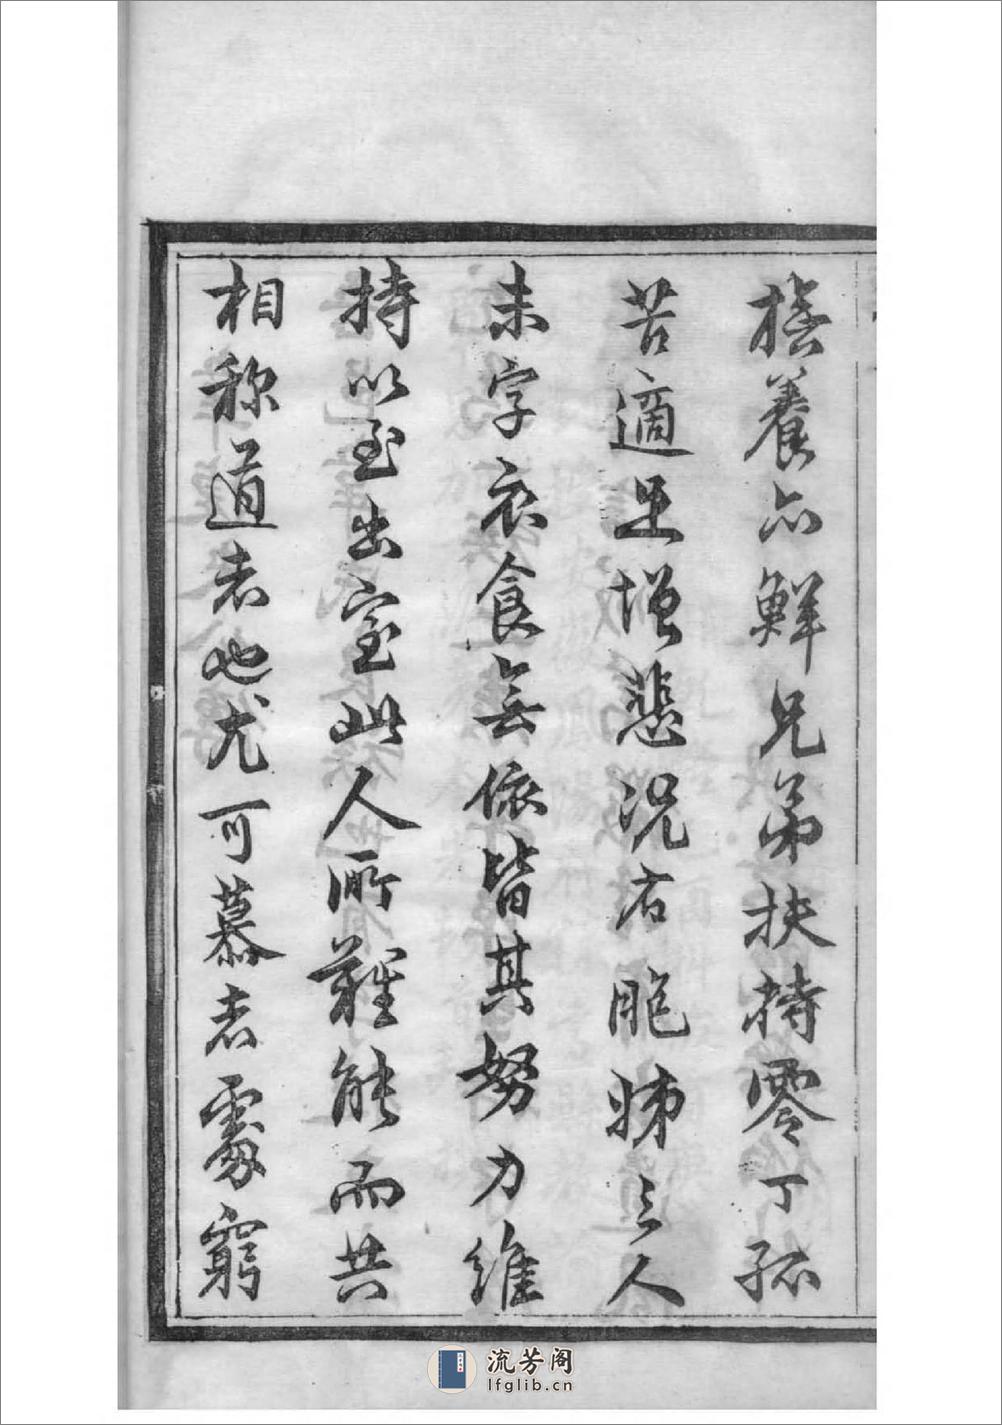 撫養亦鮮兄弟扶持零丁孤
苦適足增悲况有胞姊三人
未字衣食無依皆其努力維
持以至出室此人所難能而共
相称道者也尤可慕者處窮
流芳阁
lfglib.cn